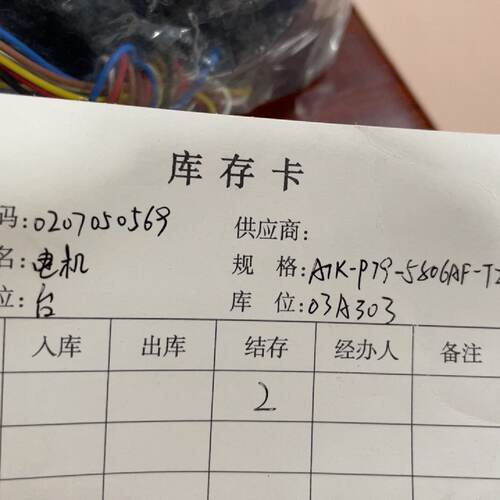 库存卡
码:0207050569 供应商:
名:电机 规 格:A7K-P79-5806AF-T
位:台 库 位:03A303
入库 出库 结存 经办人 备注
2